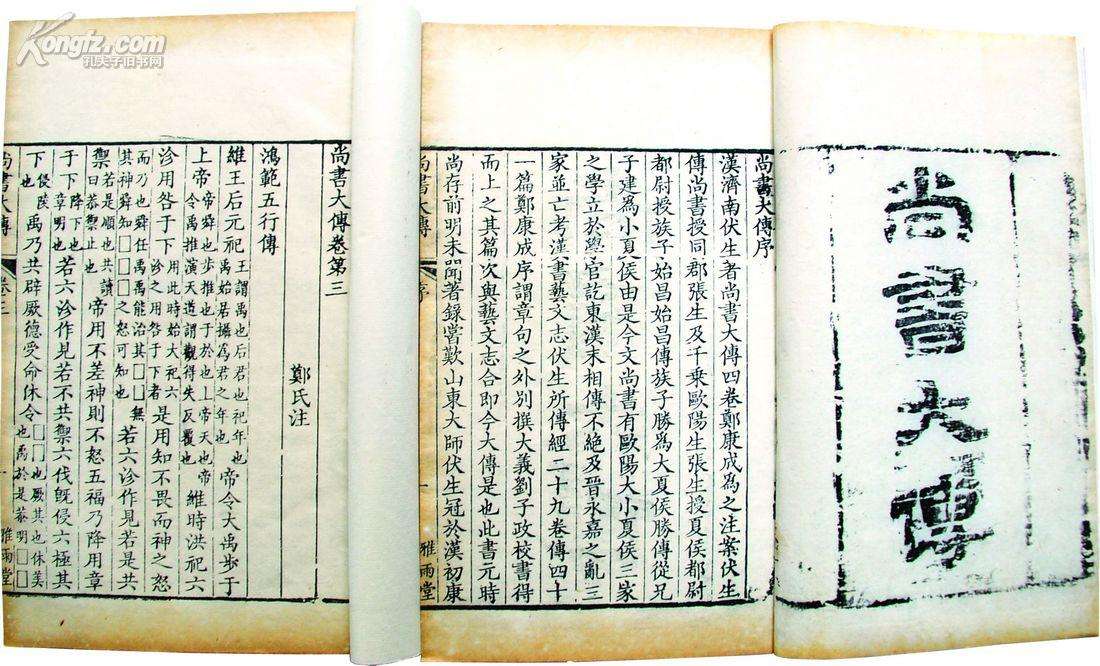 Kongfz.com
孔夫子旧书网
尚書大傳
尚書大傳序
漢濟南伏生者尚書大傳四卷鄭康成為之注案伏生
傳尚書授同郡張生及千乗歐陽生張生授夏侯都尉
都尉授族子始昌始昌傳族子勝為大夏侯勝傳從兄
子建為小夏侯由是今文尚書有歐陽大小夏侯三家
之學立於學官訖東漢末相傳不絶及晉永嘉之亂三
家並亡考漢書藝文志伏生所傳經二十九卷傳四十
一篇鄭康成序謂章句之外别撰大義劉子政校書得
而上之其篇次與藝文志合即今大傳是也此書元時
尚存前明未聞著録嘗歎山東大師伏生冠於漢初康
尚書大傳 序 一 雅雨堂
尚書大傳卷第三
鄭氏注
鴻範五行傳
維王后元祀王謂禹也后君也祀年也禹始居攝為君之年也帝令大禹步于
上帝帝舜也步推也于於也上帝天也令禹推演天道謂觀得失反覆也維時洪祀六
沴用咎于下用此時始大祀六沴之用咎于下者是用知不畏而神之怒
而乃也舜任禹禹能治其□□無其神舜知□□□之怒可知也若六沴作見若是共
禦若是順也共讀曰恭禦止也帝用不差神則不怒五福乃降用章
于下降下也章明也若六沴作見若不共禦六伐旣侵六極其
下侵陵也禹乃共辟厥德受命休令□□也厥其也休美也禹於是恭明□□
尚書大傳 卷三 一 雅雨堂